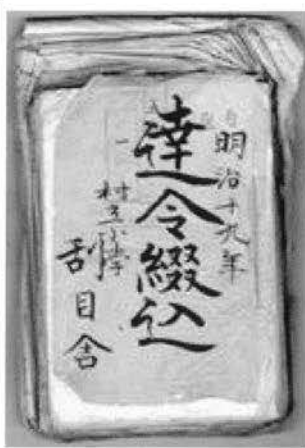 明治十九年
達令綴込
村立小学
刮目舎